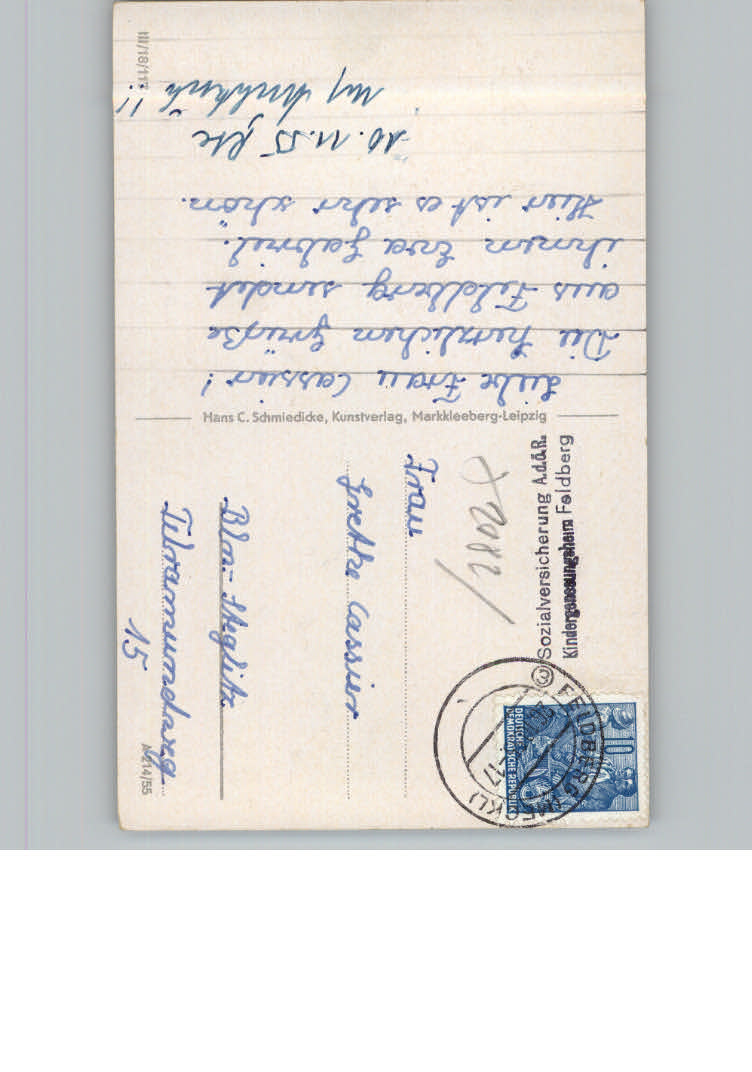 Liebe Frau Cassier!
Die herzlichen Grüße
aus Feldberg sendet
ihnen Eva Gabriel.
Hier ist es sehr schön.
10. 11. 55
III/18/117
Hans C. Schmiedicke, Kunstverlag, Markkleeberg-Leipzig
Sozialversicherung A.d.ö.R.
Kindergenesungsheim Feldberg
FELDBERG (MECKL)
10
DEUTSCHE
DEMOKRATISCHE REPUBLIK
Frau
Grethe Cassier
Bln.-Steglitz
Telramundweg
15
A 214/55